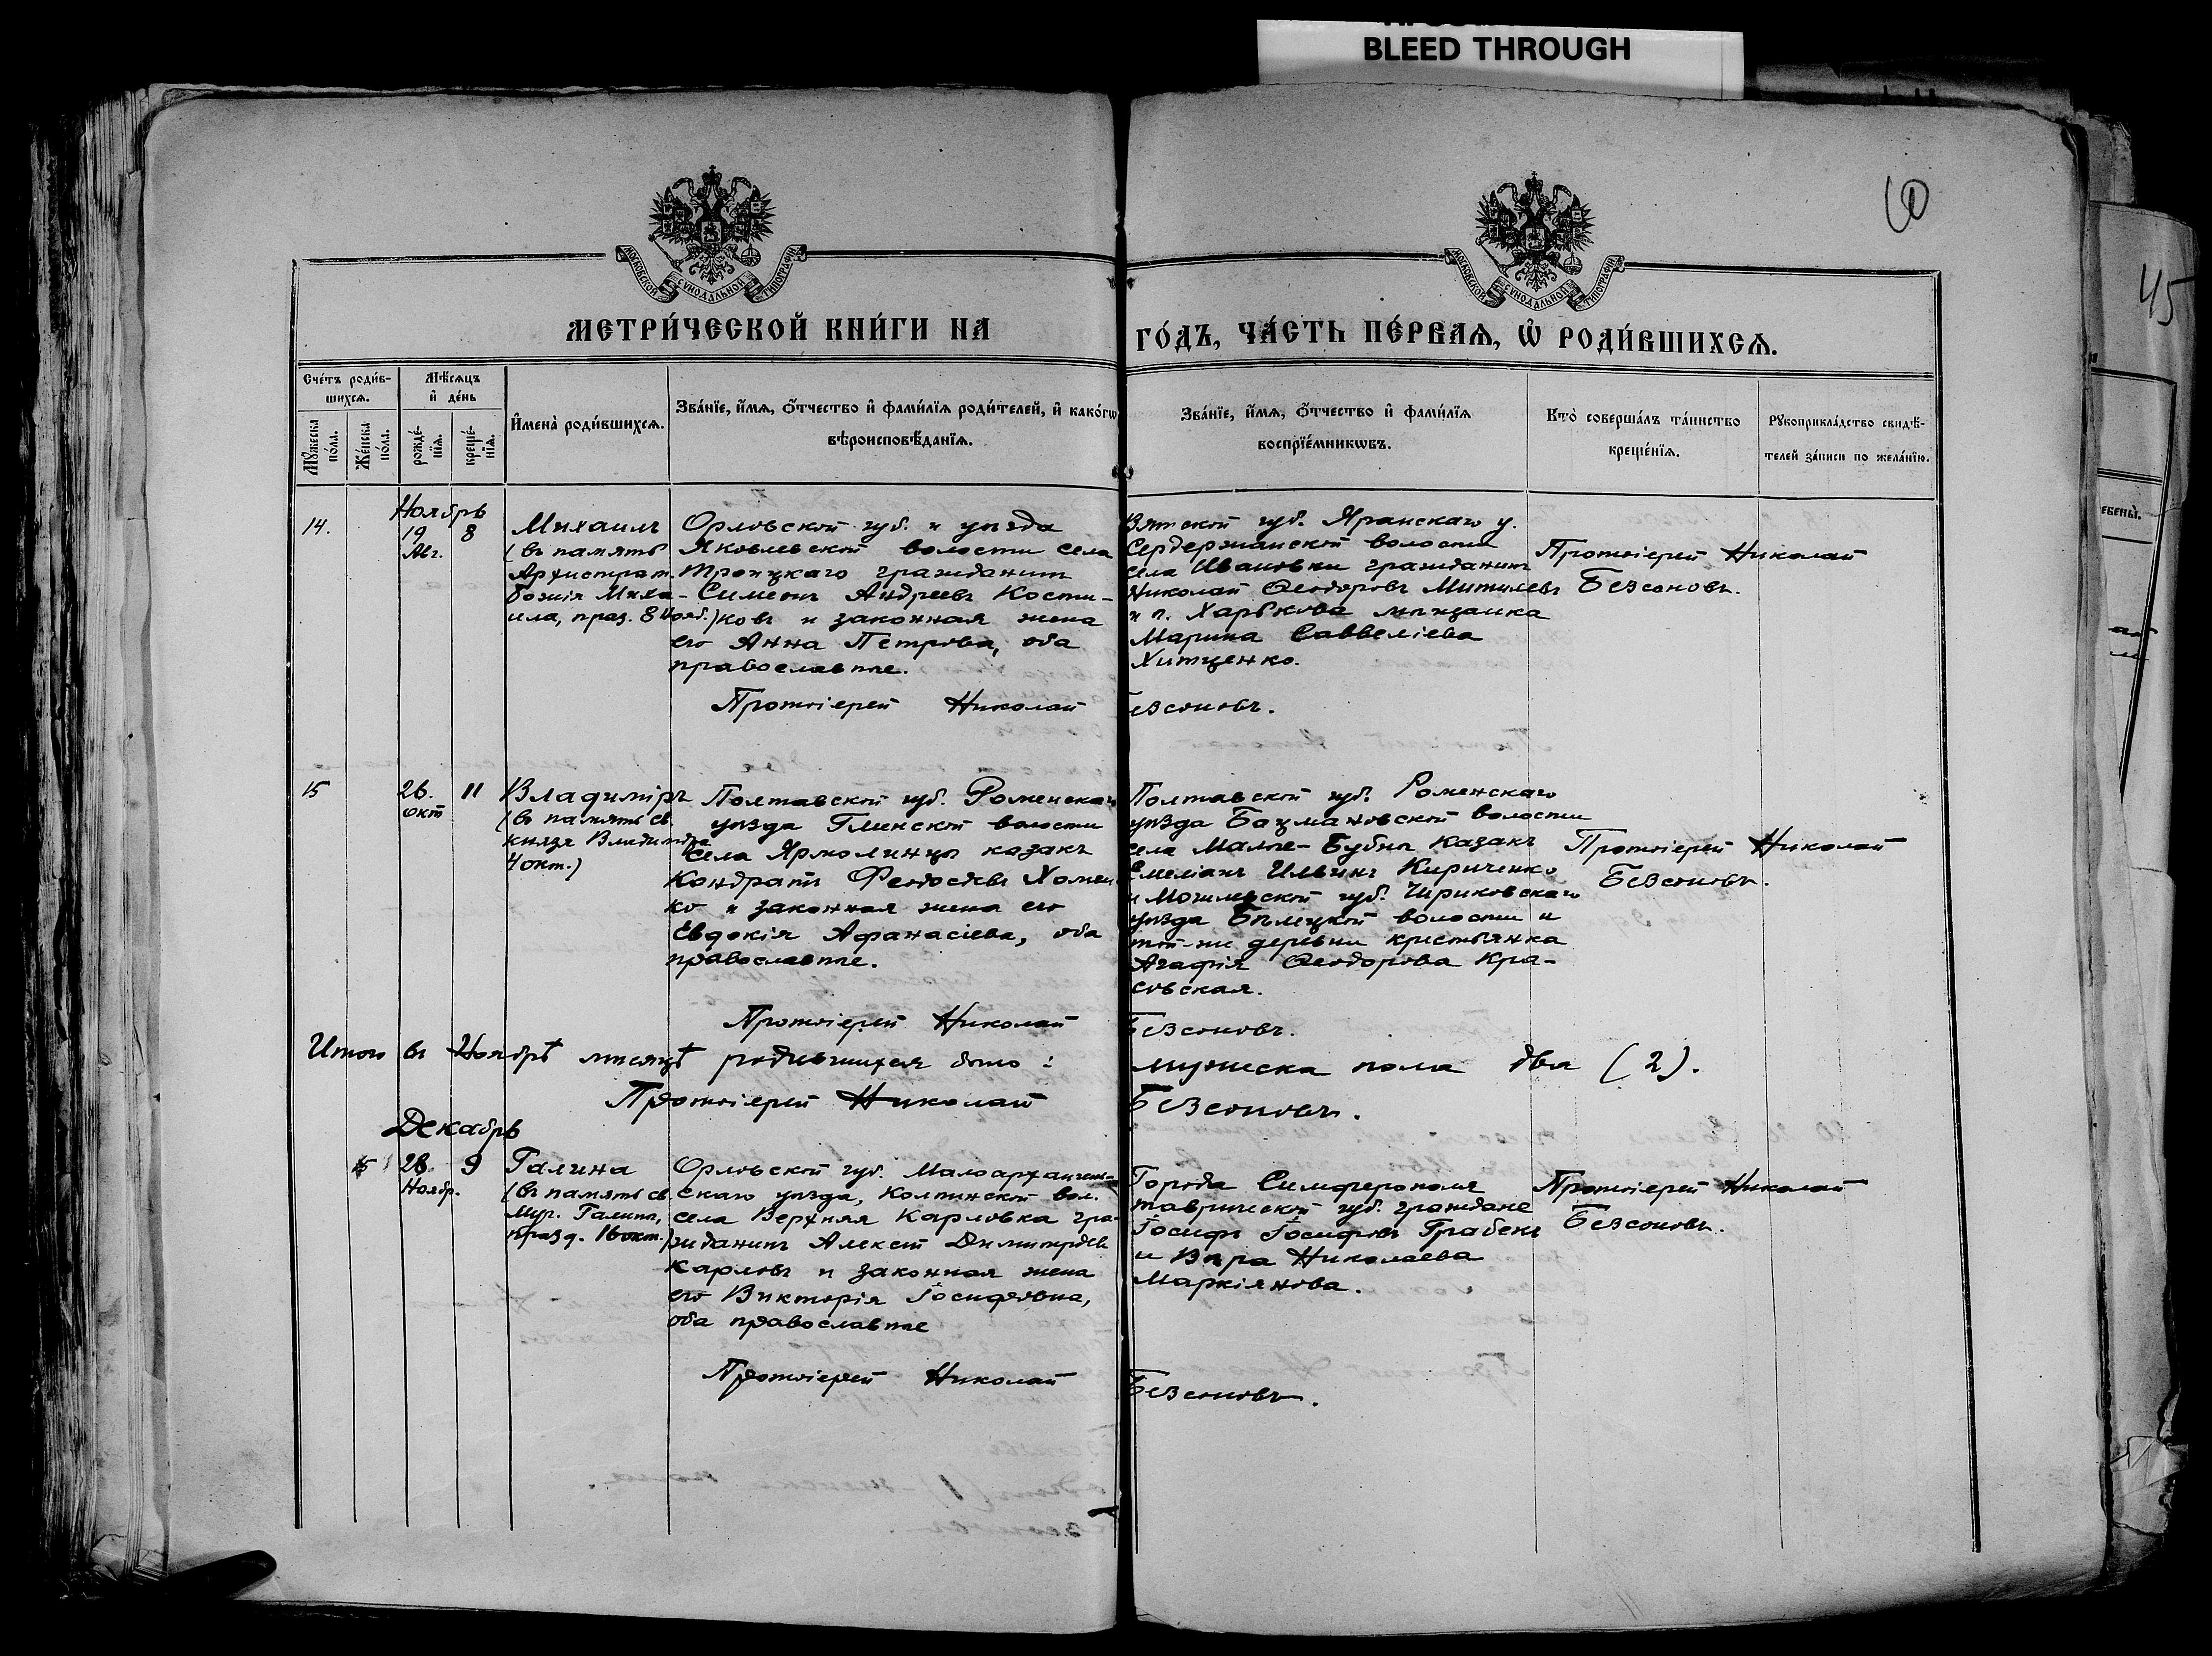 BLEED THROUGH
10
45
МОСКОВСКОЙ СѴНОДАЛЬНОЙ ТИПОГРАФІИ
МОСКОВСКОЙ СѴНОДАЛЬНОЙ ТИПОГРАФІИ
МЕТРИ́ЧЕСКОЙ КНИ́ГИ НА
ГО́ДЪ, ЧА́СТЬ ПЕ́РВАѦ, Ѡ РОДИ́ВШИХСѦ.
Сче́тъ роди́в-
шихсѧ.
Мѣ́сѧцъ
и҆ де́нь
Мꙋ́жеска по́ла.
Же́нска по́ла.
рожде́-нїѧ.
креще́-нїѧ.
И҆мена̀ роди́вшихсѧ.
Зва́нїе, и҆́мѧ, о҆́тчество и҆ фами́лїѧ роди́телей, и҆ како́гѡ
вѣроисповѣ́данїѧ.
Зва́нїе, и҆́мѧ, о҆́тчество и҆ фами́лїѧ
воспрїе́мникѡвъ.
Кто̀ соверша́лъ та́инство
креще́нїѧ.
Рꙋкоприкла́дство свидѣ́-
телей за́писи по жела́нїю.
Ноябрь
14. 19 Авг. 8
Михаилъ
(въ память
Архистрат.
Божія Миха-
ила, праз. 8 Нояб.)
Орловской губ. и уѣзда
Яковлевской волости села
Троицкаго гражданинъ
Симеонъ Андреевъ Кости-
ковъ и законная жена
его Анна Петрова, оба
православные.
Вятской губ. Яранскаго у.
Сердежанской волости
села Ивановки гражданинъ
Николай Ѳеодоровъ
и г. Харькова мѣщанка
Марина Саввеліева
Хитценко.
Протоіерей Николай
Безсоновъ.
Протоіерей Николай Безсоновъ.
15 26. окт 11
Владиміръ
(въ память св.
князя Владиміра
4 окт.)
Полтавской губ. Роменскаго
уѣзда Глинской волости
села Ярмолинцы казакъ
Кондратъ Феодосіевъ Хомен
ко и законная жена его
Евдокія Афанасіева, оба
православные.
Полтавской губ. Роменскаго
уѣзда Бацмановской волости
села Малые-Бубны казакъ
Емеліанъ Ильинъ Кириченко
и Могилевской губ. Чириковскаго
уѣзда Бѣлицкой волости и
той-же деревни крестьянка
Агафія Ѳеодорова Кра-
совская.
Протоіерей Николай
Безсоновъ.
Протоіерей Николай Безсоновъ.
Итого въ Ноябрѣ мѣсяцѣ родившихся было: мужеска пола два (2).
Протоіерей Николай Безсоновъ.
Декабрь
15 28 Ноябр. 9
Галина
(въ память св.
Муч. Галины,
празд. 16 окт.)
Орловской губ. Малоархангель-
скаго уѣзда, Колпинской вол.
села Верхняя Карловка гра-
жданинъ Алексѣй Димитріевъ
Карловъ и законная жена
его Викторія Іосифовна,
оба православные
Города Симферополя
Таврической губ. граждане
Іосифъ Іосифовъ Грабекъ
и Вѣра Николаева
Маркіянова.
Протоіерей Николай
Безсоновъ.
Протоіерей Николай Безсоновъ.